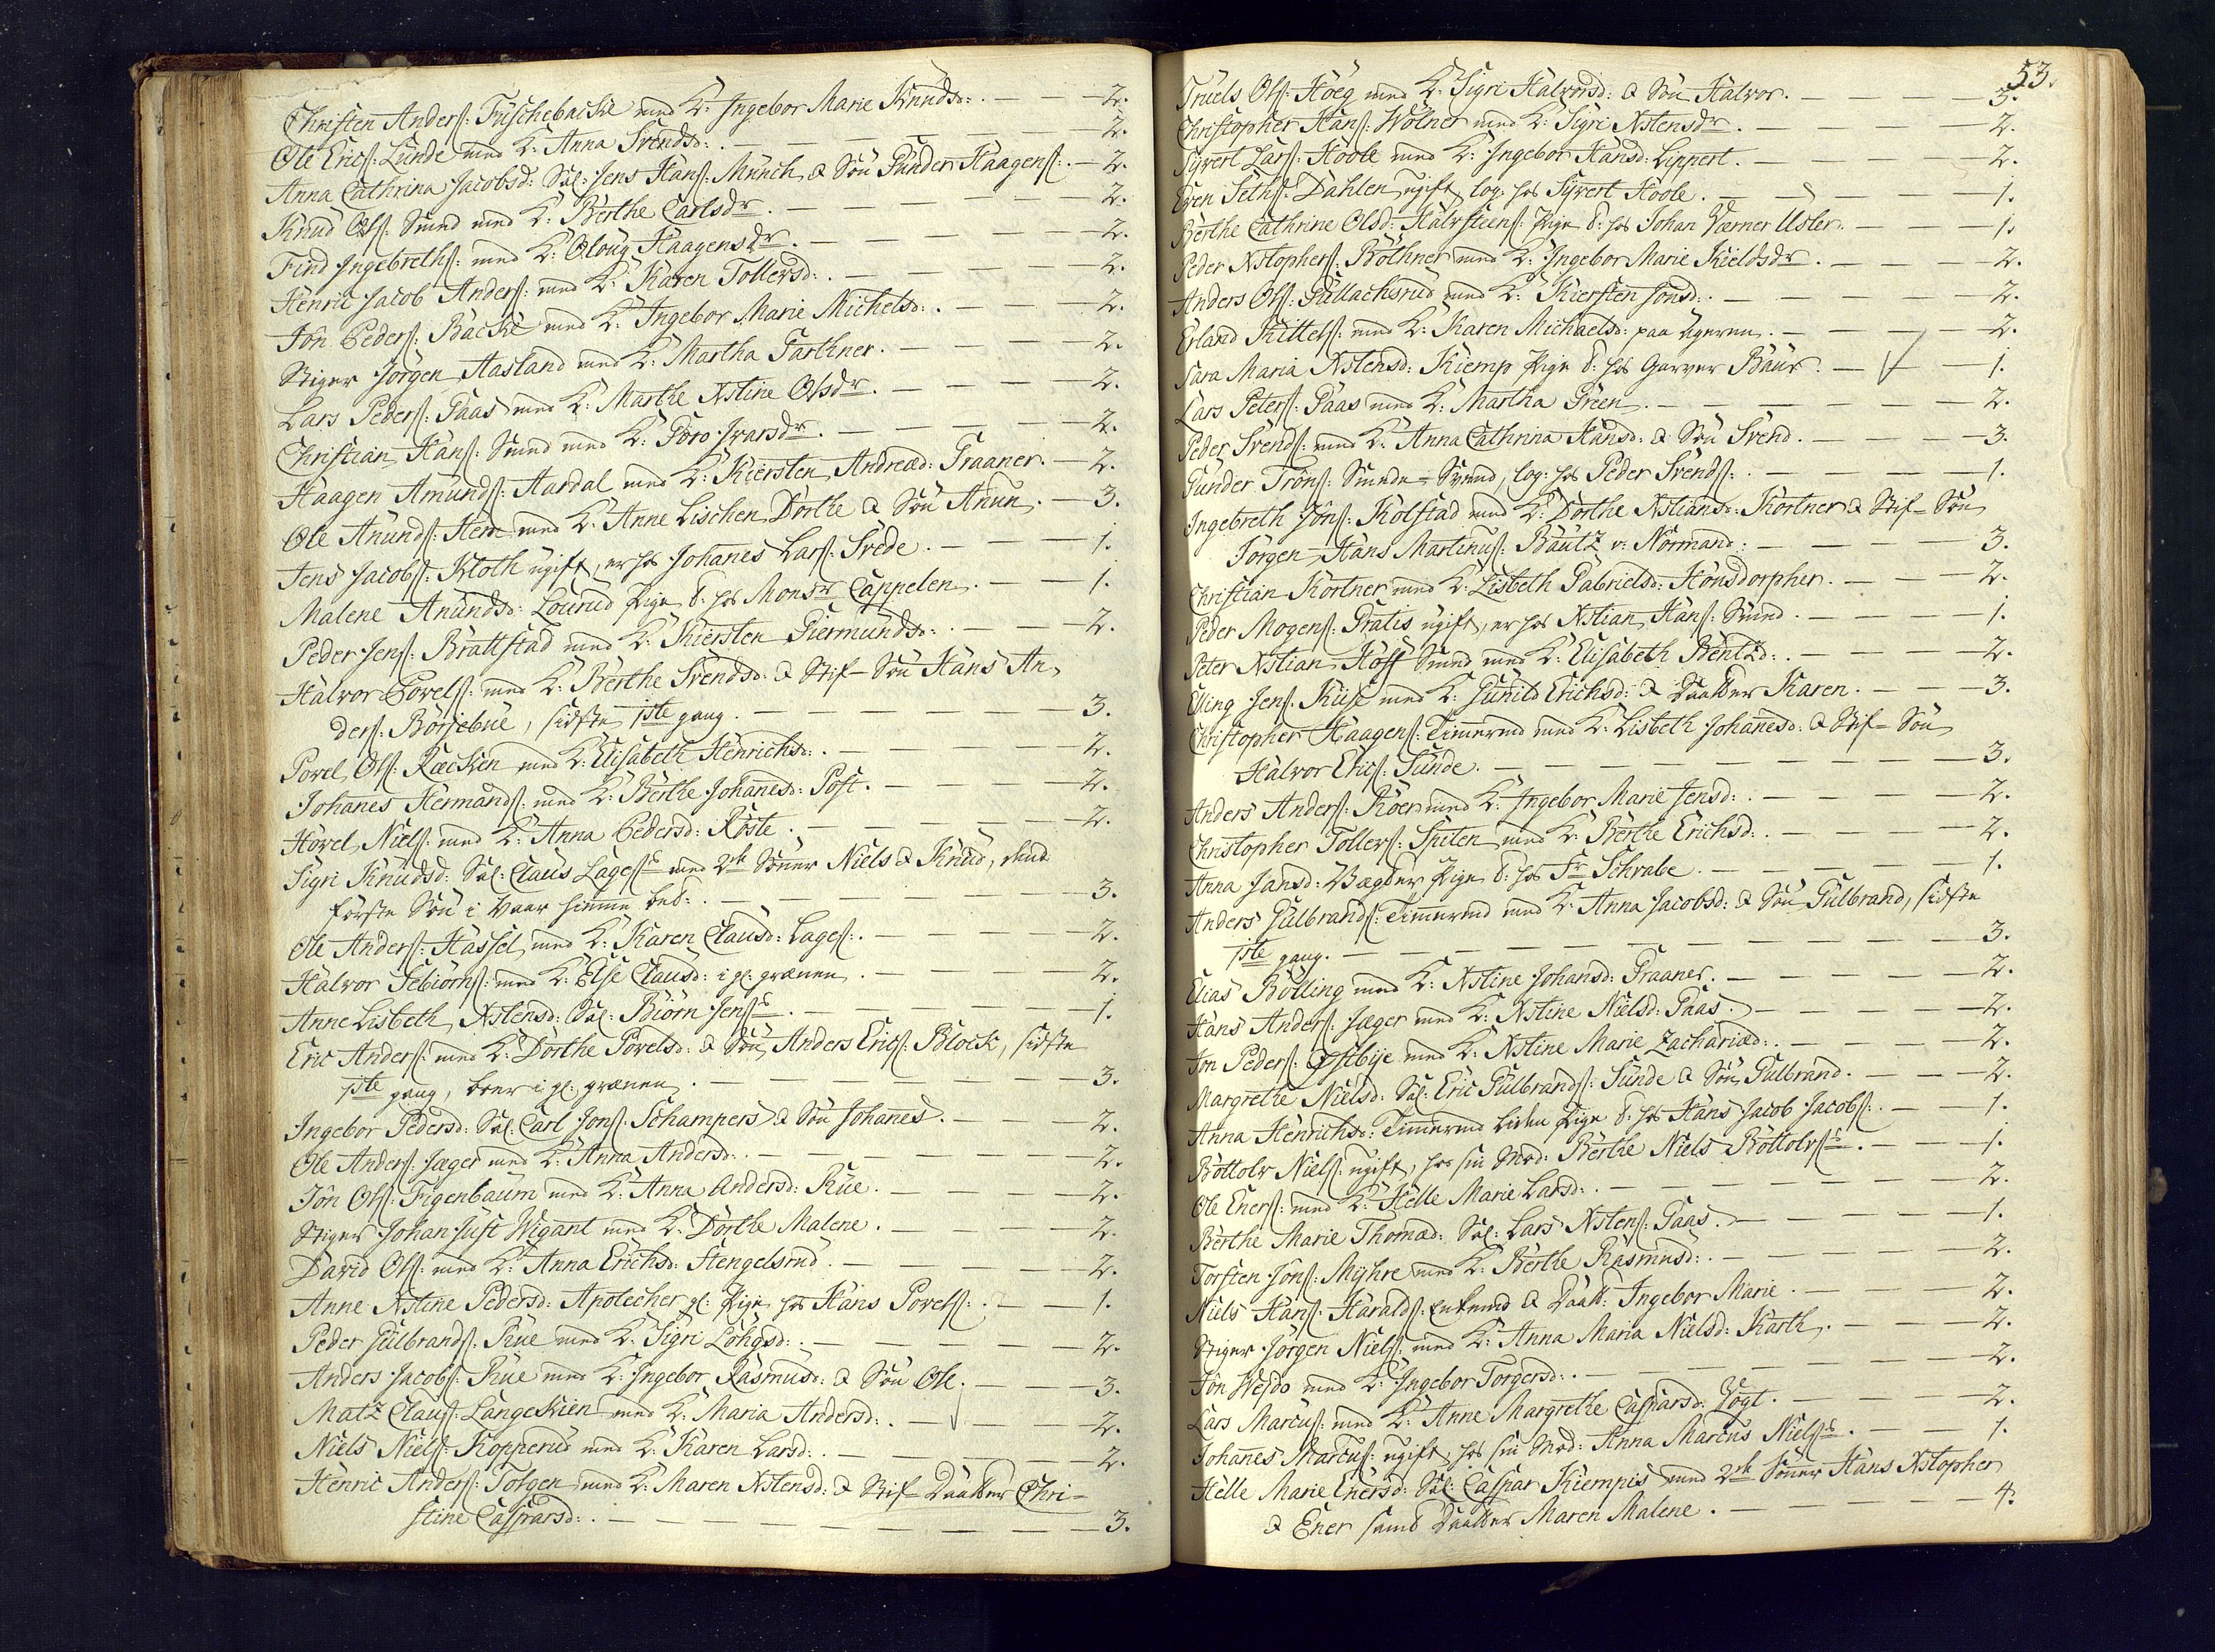 Christen Anders: Fuschebacke med K: Ingebor Marie Knudsd: . — — 2.
Ole Erics: Lunde med K: Anna Svendsd: . — — — — 2.
Anna Cathrina Jacobsd: Sal: Jens Hans: Münch & Søn Gunder Haagens: . — 2.
Knud Ols: Smed med K: Berthe Carlsdr. — — — — 2.
Find Ingebreths: med K: Oloug Haagensdr. — — — — 2.
Henric Jacob Anders: med K: Karen Tollersd: . — — — — 2.
Jon Peders: Backe med K: Ingebor Marie Michelsd: . — — — 2.
Stiger Jørgen Aasland med K: Martha Garthner. — — — 2.
Lars Peders: Gaas med K: Marthe Xstine Olsdr. — — — 2.
Christian Hans: Smed med K: Goro Ivarsdr. — — — — 2.
Haagen Amunds: Aardal med K: Kiersten Andreæd: Traaner. — 2.
Ole Anunds: Hem med K: Anne Lischen Dorthe & Søn Anun. — 3.
Jens Jacobs: Kloth ugift, er hos Johanes Lars: Svede. — — — 1.
Malene Anundsd: Lourud Pige t: hos Monsr Cappelen. — — 1.
Peder Jens: Brattstad med K: Kiersten Giermundsd: . — — — 2.
Halvor Povels: med K: Berthe Svendsd: & Stif-Søn Hans An-
ders: Børsjebue, sidste 1ste gang. — — — — — 3.
Povel Ols: Kæcken med K: Elisabeth Henrichsd: . — — — — 2.
Johanes Hermands: med K: Berthe Johanesd: Post. — — — 2.
Hovel Niels: med K: Anna Pedersd: Røste. — — — — 2.
Sigri Knudsd: Sal: Claus Lages: med 2de Sønner Niels & Knud, dend
første Søn i Vaar hiemme bet: . — — — — — 3.
Ole Anders: Hassel med K: Karen Clausd: Lages: . — — — 2.
Halvor Tebiørns: med K: Else Clausd: i gl: grænen. — — — 2.
Anne Lisbeth Xstensd: Sal: Biørn Jens: . — — — — 1.
Eric Anders: med K: Dorthe Povelsd: & Søn Anders Erics: Block, sidste
1ste gang, boer i gl: grænen. — — — — — 3.
Ingebor Pedersd: Sal: Carl Jons: Schampers & Søn Johanes. — — 2.
Ole Anders: Jæger med K: Anna Andersd: . — — — — 2.
Jon Ols: Figenbaum med K: Anna Andersd: Rue. — — — 2.
Stiger Johan Just Wigant med K: Dorthe Malene. — — — 2.
David Ols: med K: Anna Erichsd: Hengelsrud. — — — 2.
Anne Xstine Pedersd: Apotecher gl: Pige hos Hans Povels: . — — 1.
Peder Gulbrands: Rue med K: Sigri Løhgsd: . — — — 2.
Anders Jacobs: Rue med K: Ingebor Rasmusd: & Søn Ole. — — 3.
Matz Claus: Langeskien med K: Maria Andersd: . — — — 2.
Niels Niels: Kopperud med K: Karen Larsd: . — — — — 2.
Henric Anders: Torgen med K: Maren Xstensd: & Stif-Daatter Chri-
stine Casparsd: . — — — — — — 3.
53.
Truels Ols: Høeg med K: Sigri Halvorsd: & Søn Halvor. — — — 3.
Christopher Hans: Wølner med K: Sigri Xstensdr. — — — — 2.
Syvert Lars: Hoole med K: Ingebor Hansd: Lippert. — — — 2.
Even Seths: Dahlen ugift, log: hos Syvert Hoole. — — — 1.
Berthe Cathrine Olsd: Halvsteens: Pige t: hos Johan Værner Usler. — — 1.
Peder Xstophers: Røthner med K: Ingebor Marie Kieldsdr. — — — 2.
Anders Ols: Gullachsrud med K: Kiersten Jonsd: . — — — 2.
Erland Kittels: med K: Karen Michaelsd: paa Ageren. — — — 2.
Sara Maria Xstensd: Kiemp Pige t: hos Garver Baur. — — 1.
Lars Peters: Gaas med K: Martha Green. — — — — 2.
Peder Svends: med K: Anna Cathrina Hansd: & Søn Svend. — — — 3.
Gunder Trons: Smede-Svend, log: hos Peder Svends: . — — — 1.
Ingebreth Jons: Kolstad med K: Dorthe Xstiansd: Kortner & Stif-Søn
Jørgen Hans Martinus: Bautz v: Normand: . — — — 3.
Christian Kortner med K: Lisbeth Gabrielsd: Honsdorpher. — — 2.
Peder Mogens: Gratis ugift, er hos Xstian Hans: Smed. — — — 1.
Peter Xstian Hoff Smed med K: Elisabeth Bentzd: . — — — 2.
Elling Jens: Ruse med K: Gunild Erichsd: & Daatter Karen. — — 3.
Christopher Haagens: Timermd med K: Lisbeth Johanesd: & Stif-Søn
Halvor Erics: Sunde. — — — — — — 3.
Anders Anders: Roer med K: Ingebor Marie Jensd: . — — — 2.
Christopher Tollers: Spiten med K: Berthe Erichsd: . — — — 2.
Anna Jansd: Vægter Pige t: hos Fr Schrabe. — — — — 1.
Anders Gulbrands: Timermd med K: Anna Jacobsd: & Søn Gulbrand, sidste
1ste gang. — — — — — — 3.
Elias Bolling med K: Xstine Johansd: Traaner. — — — — 2.
Hans Anders: Jæger med K: Xstine Nielsd: Gaas. — — — 2.
Jon Peders: Østbije med K: Xstine Marie Zachariæd: . — — — 2.
Margrethe Nielsd: Sal: Eric Gulbrands: Sunde & Søn Gulbrand. — — 2.
Anna Henrichsd: Timermd liden Pige t: hos Hans Jacob Jacobs: . — 1.
Bottolv Niels: ugift, hos sin Mod: Berthe Niels Bottolvs: . — — 1.
Ole Eners: med K: Helle Marie Larsd: . — — — — 2.
Berthe Marie Thomæd: Sal: Lars Xstens: Gaas. — — — — 1.
Torsten Jons: Myhre med K: Berthe Rasmusd: . — — — — 2.
Niels Hans: Haralds: Enkemd & Daatt: Ingebor Marie. — — — 2.
Stiger Jørgen Niels: med K: Anna Maria Nielsd: Karth. — — — 2.
Jon Wesdo med K: Ingebor Torgersd: . — — — — 2.
Lars Marcus: med K: Anne Margrethe Casparsd: Vogt. — — — 2.
Johanes Marcus: ugift, hos sin Mod: Anna Marcus Niels: . — — 1.
Helle Marie Enersd: Sal: Caspar Kiempis med 2de Sønner Hans Xstopher
& Ener samt Daatter Maren Malene. — — — — 4.